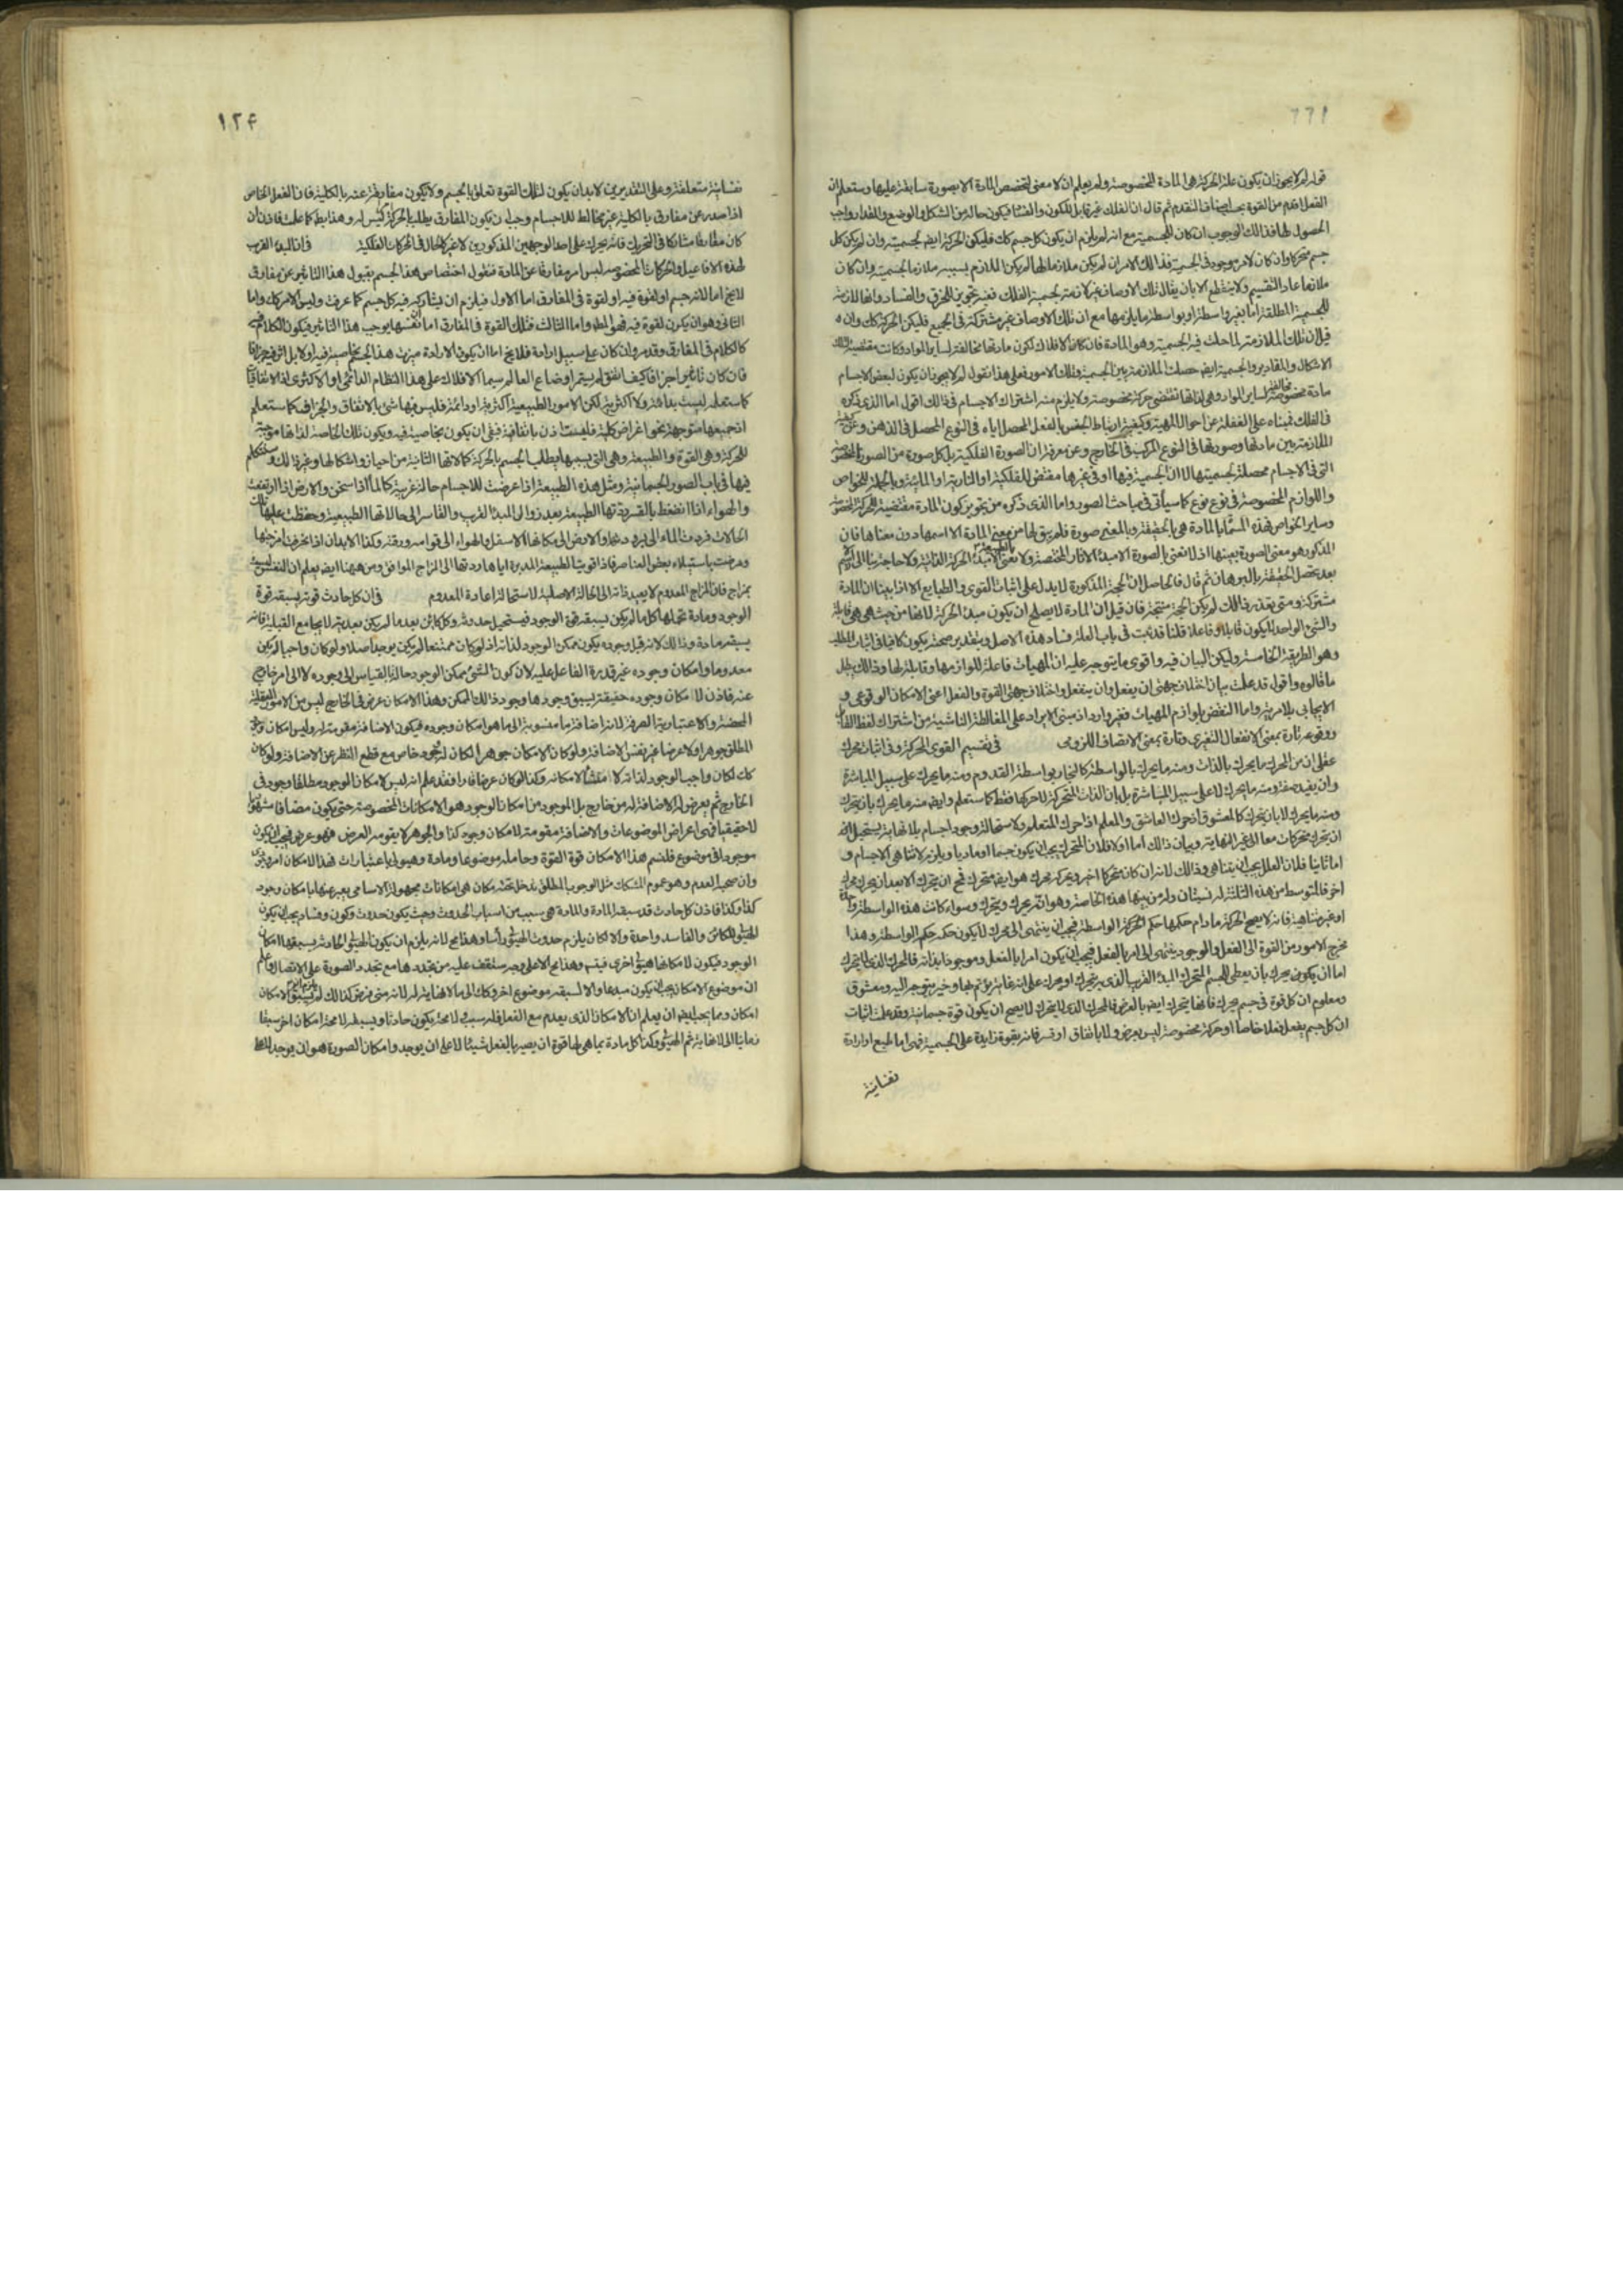 ١٢٤
قوله لم لا يجوز ان يكون علة الحركة هى المادة المخصوصة ولم يعلم ان لا معنى لتخصص المادة الا بصورة سابقة عليها وستعلم ان
الفعل اقدم من القوة بحسب اصناف التقدم ثم قال ان الفلك غير قابل للكون والفساد فيكون حاله من الشكل والوضع والمقدار واجب
الحصول لها فذالك الوجوب ان كان للجسمية مع انه لم يلزم ان يكون كل جسم كك فليكن الحركة ايضا لجسميته وان لم يكن كل
جسم متحركا وان كان لامر موجود فى الجسمية فذالك الامر ان لم يكن ملازما لها لم يكن الملازم بسببه ملازما للجسمية وان كان
ملازما عاد التقسيم ولا ينقطع الا بان يقال تلك الاوصاف غير لازمة لجسمية الفلك ففيه تجويز للخرق والفساد وانها لازمة
للجسمية المطلقة اما بغير واسطة او بواسطة ما يلازمها مع ان تلك الاوصاف غير مشتركة فى الجميع فليكن الحركة كك وان
قيل ان تلك الملازمة لما حلت فيه الجسمية وهو المادة فان كانت الافلاك لكون مادتها مخالفة لساير المواد وكانت مقتضية لتلك
الاشكال والمقادير والجسمية ايضا حصلت الملازمة بين الجسمية وتلك الامور فعلى هذا نقول لم لا يجوز ان يكون لبعض الاجسام
مادة مخصوصة مخالفة لساير المواد وهى لذاتها تقتضى حركة مخصوصة ولا يلزم منه اشتراك الاجسام فى ذالك اقول اما الذى ذكره
فى الفلك فمبناه على الغفلة عن احوال المهية وكيفية ارتباط الجنس بالفصل المحصل اياه فى النوع المحصل فى الذهن وعن كيفية
الملازمة بين مادتها وصورتها فى النوع المركب فى الخارج وعن معرفة ان الصورة الفلكية بل كل صورة من الصور المخصوصة
التى فى الاجسام محصلة لجسميتها لا ان الجسمية فيها او فى غيرها مقتض للفلكية او النارية او المائية وبالجملة للخواص
واللوازم المخصوصة فى نوع نوع كما سيأتى فى مباحث الصور واما الذى ذكره من تجويز كون المادة مقتضية للحركة المخصوصة
وساير الخواص فهذه المسماة بالمادة هى بالحقيقة وبالمعنى صورة فلم يبق لها من معنى المادة الا اسمها دون معناها فان
المذكور هو معنى الصورة بعينها اذ لا نعنى بالصورة الا مبدء الاثار المختصة ولا نعنى بالطبيعة الا مبدء الحركة الذاتية ولا حاجة بنا الى الاسم
بعد تحصل الحقيقة بالبرهان ثم قال فالحاصل ان الحجة المذكورة لا يدل على اثبات القوى والطبايع الا اذا بينا ان المادة
مشتركة ومتى تعذر ذالك لم يكن الحجة منتجة فان قيل ان المادة لا يصلح ان يكون مبدء الحركة لانها من حيث هى هى قابلة
والشئ الواحد لا يكون قابلا وفاعلا قلنا قد ثبت فى باب العلة فساد هذه الاصل وبتقدير صحته يكون كافيا فى اثبات المطلب
وهو الطريقة الخامسة وليكن البيان فيه واقوى ما يتوجه عليه ان المهيات فاعلة للوازمها وقابلة لها وذالك يبطل
ما قالوه واقول قد علمت بيان اختلاف جهتى ان يفعل وان ينفعل واختلاف جهتى القوة والفعل اعنى الامكان الوقوعى و
الايجابى بلا مرية واما النقض بلوازم المهيات فغير وارد اذ مبنى الايراد على المغالطة الناشية من اشتراك لفظ القابل
ووقوعه تارة بمعنى الانفعال التغيرى وتارة بمعنى الاتصاف اللزومى فى تقسيم القوى المحركة وفى اثبات محرك
عقلى ان من المحرك ما يحرك بالذات ومنه ما يحرك بالواسطة كالنجار بواسطة القدوم ومنه ما يحرك على سبيل المباشرة
وان يفيد صفة ومنه ما يحرك لا على سبيل المباشرة بل بان الذات المتحركة لاجزائها فقط كما ستعلم وايضا منه ما يحرك بان يتحرك
ومنه ما يحرك لا بان يتحرك كالمعشوق اذ حرك العاشق والمعلم اذا حرك المتعلم ولاستحالة وجود اجسام بلا نهاية يستحيل ايضا
ان يتحرك متحركات معا الى غير النهاية وبيان ذالك اما اولا فلان المتحرك يجب ان يكون جسما او ماديا ويلزم لا تناهى الاجسام و
اما ثانيا فلان العلل يجب ان يتناهى وذالك لانه ان كان متحركا اخر ويحركه محرك هو ايضا متحرك فح ان يتحرك الا بعد ان يحركه محرك
اخر فالمتوسط من هذه الثلثة له نسبتان ولزمه بينها هذه الخاصة وهو انه يحرك ويتحرك وسواء كانت هذه الواسطة واحدة
او غير متناهية فانه لا يصح الحركة ما دام حكمها حكم الواسطة فيجب ان ينتهى الى محرك لا يكون حكمه حكم الواسطة وهذا
مخرج الامور من القوة الى الفعل والوجود ينتهى الى امر بالفعل فيجب ان يكون امرا بالفعل وموجودا بذاته فالمحرك الذى لا يتحرك
اما ان يكون يحرك بان يعطى للجسم المتحرك المبدء القريب الذى به يتحرك او يحرك على انه غاية يؤتم بها وخير يتوجه اليه ومعشوق
ومعلوم ان كل قوة فى جسم يحرك فانها تتحرك ايضا بالعرض فالمحرك الذى لا يتحرك لا يصح ان يكون قوة جسمانية وقد علمت اثبات
ان كل جسم يفعل فعلا خاصا او حركة مخصوصة ليس بعرض ولا باتفاق او قسر فانه بقوة زايدة على الجسمية فهى اما طبع او ارادة
نفسانية
نفسانية متعلقة وعلى التقديرين لابد ان يكون لتلك القوة تعلق بالجسم ولا يكون مفارقة عنه بالكلية فان الفعل الخاص
اذا صدر عن مفارق بالكلية غير مخالط للاجسام وجب ان يكون المفارق يطلب بالحركة ليس له وهذا بط كما علمت فاذن ان
كان مفارقا مشاركا فى التحريك فانه يحرك على احد الوجهين المذكورين لا غير كالحال فى الحركات الفلكية فى ان المبدء القريب
لهذه الافاعيل والحركات المخصوصة ليس امر مفارقا عن المادة فنقول اختصاص هذا الجسم بقبول هذا التاثير عن مفارق
لا يخ اما لانه جسم او لقوة فيه او لقوة فى المفارق اما الاول فيلزم ان يشاركه فيه كل جسم كما عرفت وليس الامر كك واما
الثانى وهو ان يكون لقوة فيه فهو المط واما الثالث فتلك القوة فى المفارق اما ان نفسها يوجب هذا التاثير فيكون الكلام فيه
كالكلام فى المفارق وقد مر وان كان على سبيل ارادة فلا يخ اما ان يكون الارادة ميزت هذا الجسم بخاصية فيه او لا بل اتفق جزافا
فان كان تاثيرا جزافا كيف اتفق لم يستمر اوضاع العالم سيما الافلاك على هذا النظام الدائمى او الاكثرى اذ الاتفاقيات
كما ستعلمه ليست بدائمة ولا اكثرية لكن الامور الطبيعية اكثرية او دائمة فليس فيها شئ بالاتفاق والجزاف كما ستعلم
اذ جميعها متوجهة نحو اغراض كلية فليست اذن باتفاقية فبقى ان يكون بخاصية فيه ويكون تلك الخاصة لذاتها موجبة
للحركة وهى القوة والطبيعة وهى التى بسببها يطلب الجسم بالحركة كمالاتها الثانية من احيازها واشكالها وغير ذالك وسنتكلم
فيها فى باب الصور الجسمانية ومثل هذه الطبيعة اذا عرضت للاجسام حالة غريبة كالماء اذا سخن والارض اذا ارتفعت
والهواء اذا انضغط بالقسر ردتها الطبيعة بعد زوال المبدء الغريب والقاسر الى حالاتها الطبيعية وحفظت عليها تلك
الحالات فردت الماء الى برودته والارض الى مكانها الاسفل والهواء الى قوامه ورقته وكذا الابدان اذا انحرفت امزجتها
ومرضت باستيلاء بعض العناصر فاذا قويت الطبيعة المدبرة اياها ردتها الى المزاج الموافق ومن هيهنا ايضا يعلم ان النفس ليست
بمزاج فان المزاج المعدوم لا يعيد ذاته الى الحالة الاصلية لاستحالة اعادة المعدوم فى ان كل حادث قوته يسبقه قوة
الوجود ومادة تحملها كل ما لم يكن يسبقه قوة الوجود فيستحيل حدوثه وكل كائن بعد ما لم يكن بعدية لا يجامع القبلية فانه
يسبقه مادة وذالك لانه قبل وجوده يكون ممكن الوجود لذاته اذ لو كان ممتنعا لم يكن يوجد اصلا ولو كان واجبا لم يكن
معدوما وامكان وجوده غير قدرة الفاعل عليه لان كون الشئ ممكن الوجود حالة له بالقياس الى وجوده لا الى امر خارج
عنه فاذن للامكان وجوده حقيقة يسبق وجودها وجود ذالك الممكن وهذا الامكان عرض فى الخارج ليس من الامور العقلية
المحضة والاعتبارية الصرفة لانه اضافة ما منسوبة الى ما هو امكان وجوده فيكون الاضافة مقومة له وليس امكان وجود
المطلق جوهرا ولا عرضا غير نفس الاضافة ولو كان الامكان جوهرا لكان له وجود خاص مع قطع النظر عن الاضافة ولو كان
كك لكان واجب الوجود لذاته لا منشأ لامكانه وكذا لو كان عرضا قارا فقد علم انه ليس لامكان الوجود مطلقا وجود فى
الخارج ثم يعرض له الاضافة له من خارج بل الموجود من امكان الوجود هو الامكانات المخصوصة حتى يكون مضافا مشهوريا
لا حقيقيا فهى اعراض الموضوعات والاضافة مقومة لامكان وجود كذا والجوهر لا يقومه العرض فهو عرض فيجب ان يكون
موجودا فى موضوع فلنسم هذا الامكان قوة القوة وحامله موضوعا ومادة وهيولى باعتبارات فهذا الامكان امر وجودى
وان صحبه العدم وهو عموم المشكك مثل الوجوب المطلق يدخل تحته مكان هى امكانات مجهولة الاسامى يعبر عنها بامكان وجود
كذا وكذا فاذن كل حادث قد سبقه المادة والمادة هى سبب من اسباب الحدوث وحيث يكون حدوث وكون وفساد يجب ان يكون
الهيولى للكائن والفاسد واحدة والا لكان يلزم حدوث الهيولى رأسا وهذا مح لانه يلزم ان يكون الهيولى الحادثة يسبقها امكان
الوجود فيكون لامكانها هيولى اخرى فيتسلسل وهذا مح الا على وجه ستقف عليه من تجدد هامع تجدد الصورة على الاتصال واعلم
ان موضوع الامكان يجب ان يكون مبدعا والا لسبقه موضوع اخر وكك الى ما لا نهاية له لانه متى فرض كذالك لم يسبق الامكان
امكان ومما يجب ايضا ان يعلم ان الامكان الذى يعدم مع الفعل فله سبب لا محة يكون حادثا ويسبقه لا محة امكان اخر سبقا
زمانيا لا الى نهاية ثم الهيولى وكذا كل مادة بما هى لها قوة ان يصير بالفعل شيئا لا على ان يوجد وامكان الصورة هو ان يوجد للهيولى